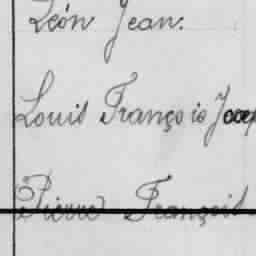 Léon Jean.
Louis François
Pierre François